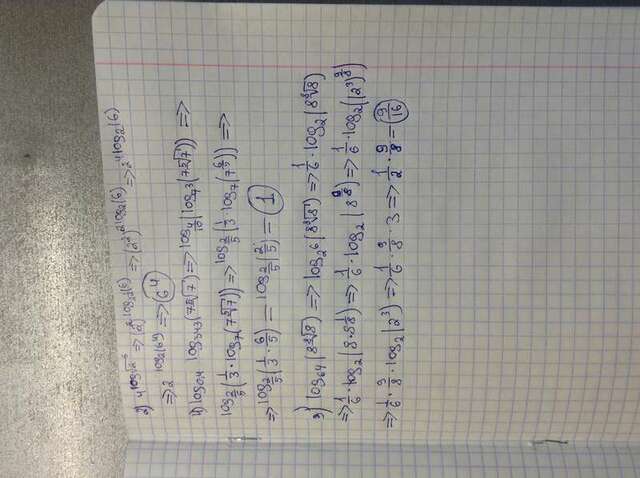 2) 4^log_√2 6 => (2²)^log_2^½(6) => (2²)^2log₂(6) => 2^4log₂(6)
=> 2^log₂(6⁴) => 6⁴
4) log_0,4 log_343(7⁵√7) => log_4/10(log_7³(7⁵√7)) =>
log_2/5(1/3 · log₇(7⁵√7)) => log_2/5(1/3 · log₇(7^6/5)) =>
=> log_2/5(1/3 · 6/5) = log_2/5(2/5) = 1
3) log₆₄(8⁸√8) => log_2⁶(8⁸√8) => 1/6 · log₂(8⁸√8)
=> 1/6 · log₂(8·8^1/8) => 1/6 · log₂(8^9/8) => 1/6 · log₂((2³)^9/8)
=> 1/6 · 9/8 · log₂(2³) => 1/6 · 9/8 · 3 => 1/2 · 9/8 = 9/16